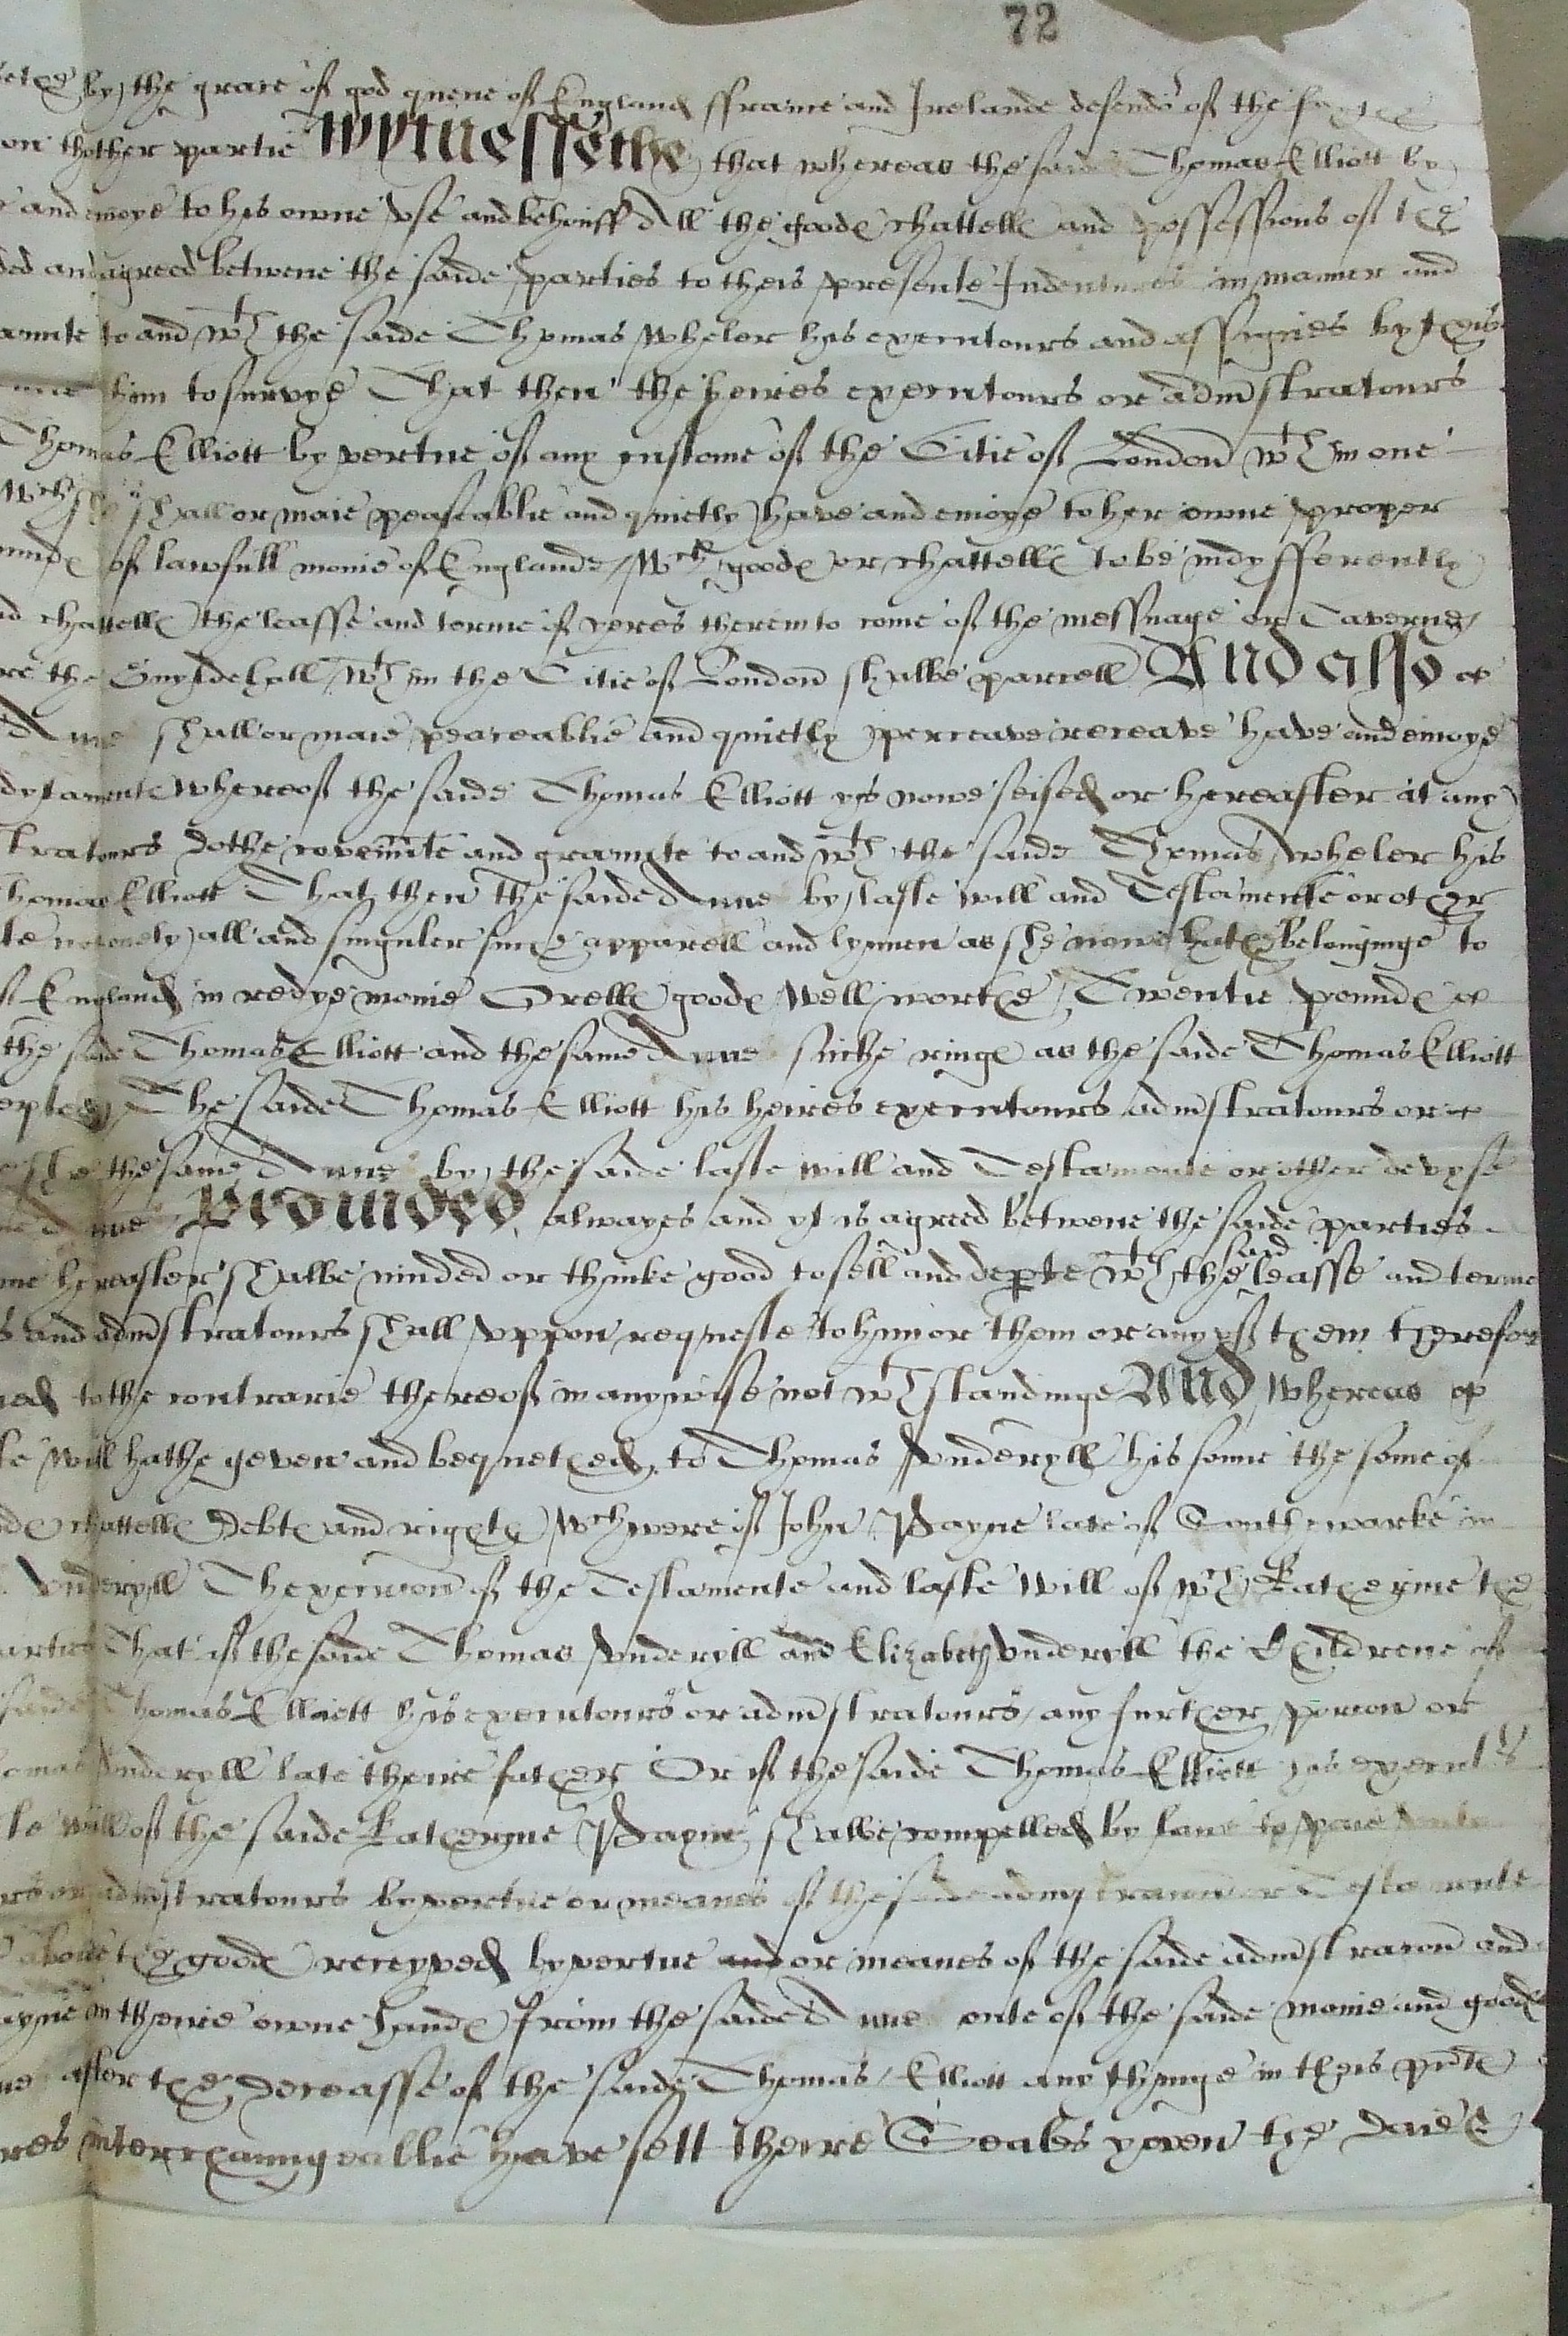 72
by the grace of god quene of England ffrance and Irelande defendor of the
on thother partie Wytnessethe that whereas the saide Thomas Elliott by
and enioye to his owne vse and behouff All the goode chattelle and possessions of the
ded and agreed betwene the saide parties to theis presente Indentures in manner and
to and wth the saide Thomas Wheler his executours and assignes by
him to survyve That then the heires executours or admstratours
Thomas Elliott by vertue of any custome of the Citie of London wthin one
wch she shall or maie peaseablie and quietly have and enioye to her owne proper
of lawfull monie of Englande wch goode or chattelle to be indyfferently
chattelle the leasse and terme of yeres therein to come of the messuage or Taverne
the Guyldehall wthin the Citie of London shalbe parcell And also
Anne shall or maie peaceablie and quietly perceave receave have and enioye
whereof the saide Thomas Elliott ys nowe seised or hereafter at any
tratours dothe covennte and graunte to and wth the saide Thomas Wheler his
Thomas Elliott That then the saide Anne by laste will and Testamente or other
all and singuler suche apparell and lynnen as she nowe hathe belonginge to
England in redye monie Orelle goode well worthe Twentie pounde
the saide Thomas Elliott and the same Anne suche ringe as the saide Thomas Elliott
The saide Thomas Elliott his heires executours admstratours or
she the same Anne by the saide laste will and Testamente or other devyse
Anne Provided alwayes and yt is agreed betwene the saide parties
hereafter shalbe minded or thinke good to sell and departe wth the said leasse and terme
and admstratours shall vppon requeste to him or them or any of them therefor
to the contrarie thereof in anywise not wthstandinge And whereas
will hathe geven and bequethed to Thomas Vnderyll his sonne the some of
chattelle debte and righte wch were of John Payne late of Southewarke in
Vnderyll Thexecucon of the Testamente and laste will of wch Katheryne the
That if the saide Thomas Vnderyll and Elizabeth Vnderyll the Children of
saide Thomas Elliott his executours or admstratours any further porcon or
Vnderyll late theire father Or if the saide Thomas Elliott his executrs
will of the saide Katheryne Payne shalbe compelled by lawe to paie
or admstratours by vertue or meanes of the saide Testamente
above the goode receyved by vertue and or meanes of the saide admstracon and
in theire owne hande from the saide Anne oute of the saide monie and goode
after the deceasse of the saide Thomas Elliott any thinge in theis pnte
interchaungeablie have sett theire Seales yeven the daie